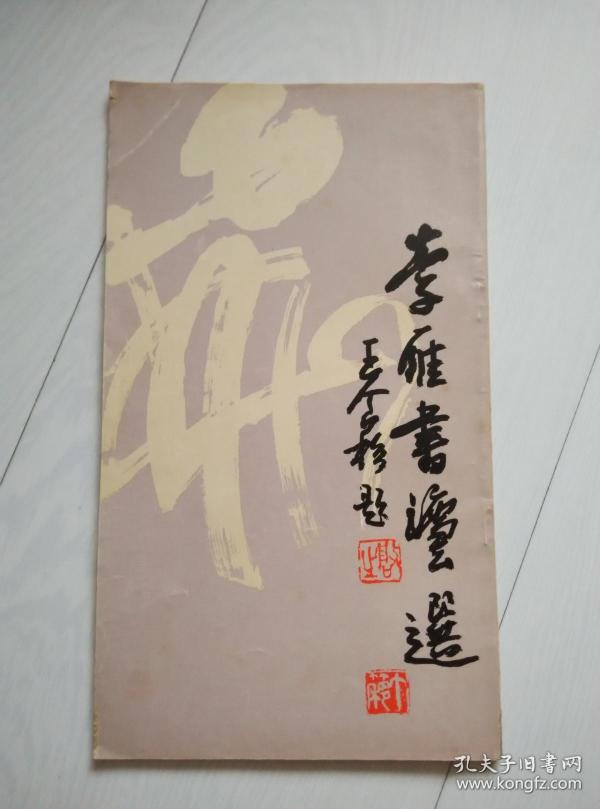 李雁書藝選
王个簃题
启之
个簃
孔夫子旧书网
www.kongfz.com